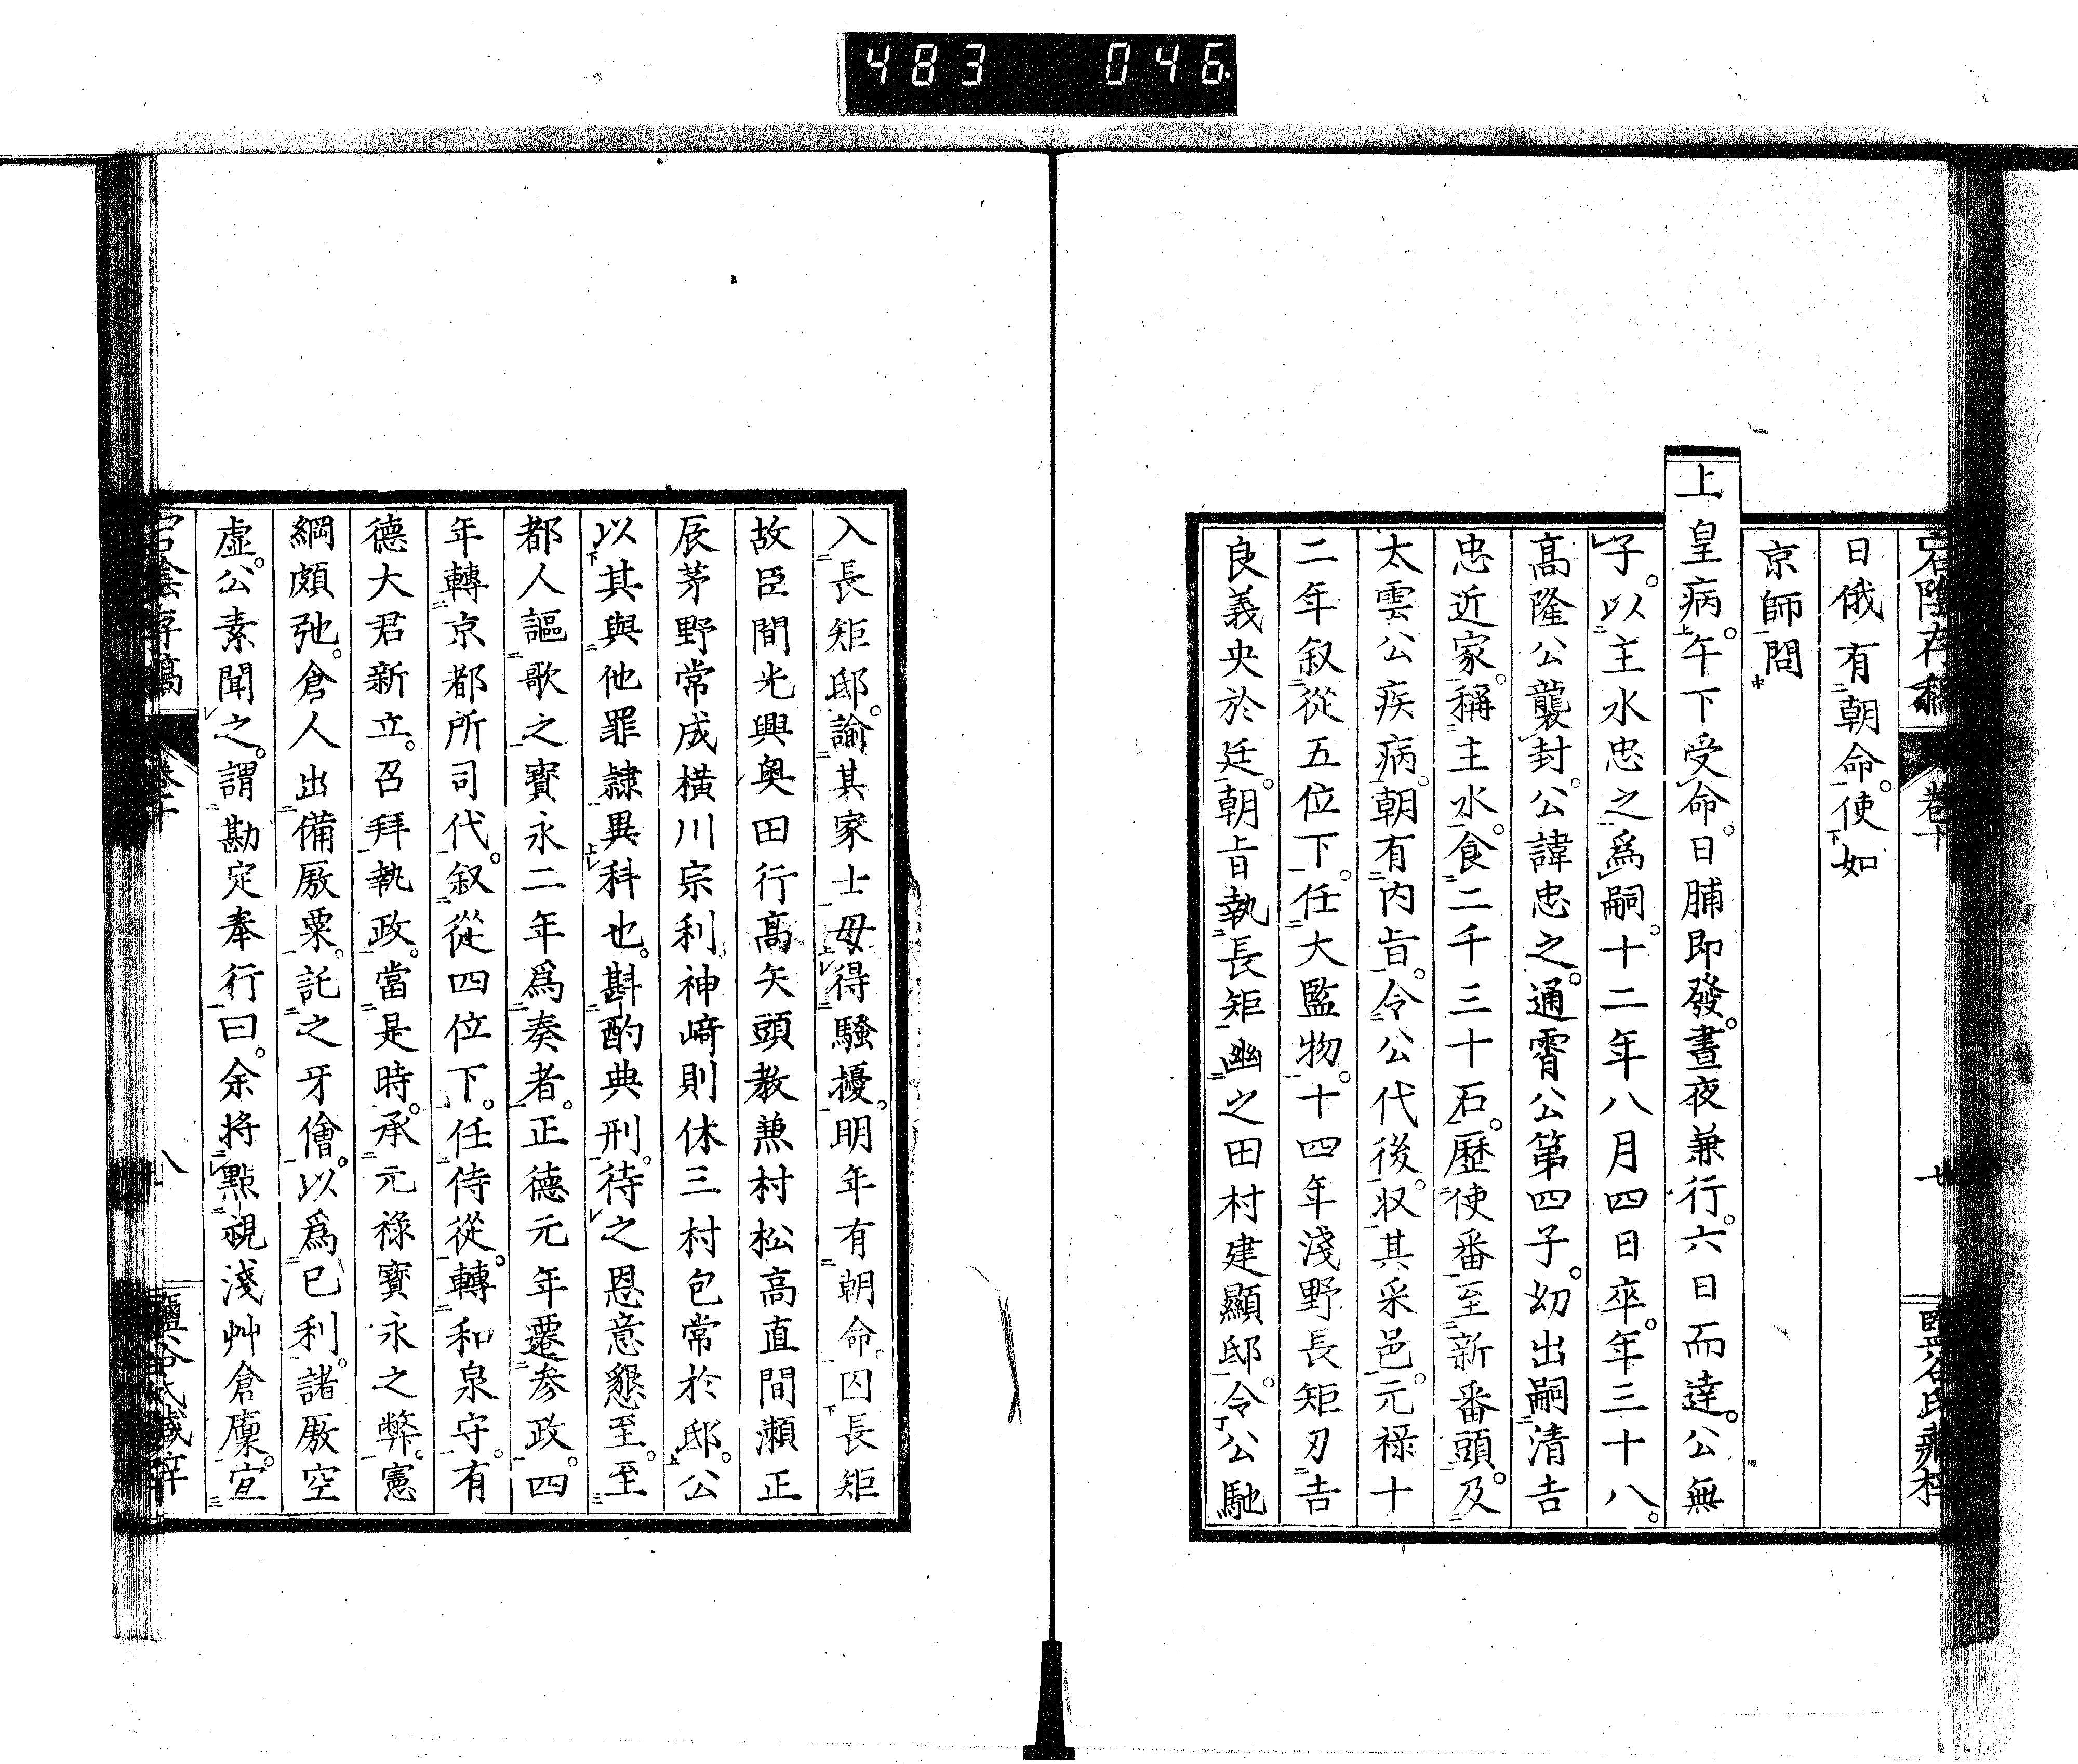 483 046
日俄有朝命。使如
京師問
上皇病。午下受命。日脯即發。晝夜兼行。六日而達。公無
子。以主水忠之爲嗣。十二年八月四日卒。年三十八。
高隆公襲封。公諱忠之。通霄公第四子。幼出嗣清吉
忠近家。稱主水。食二千三十石。歷使番至新番頭。及
太雲公疾病。朝有內旨。令公代後。収其采邑。元祿十
二年叙從五位下。任大監物。十四年淺野長矩刃吉
良義央於廷。朝旨執長矩幽之田村建顯邸。令公馳
入長矩邸。諭其家士毋得騷擾。明年有朝命。囚長矩
故臣間光興奥田行高矢頭教兼村松高直間瀬正
辰茅野常成橫川宗利神﨑則休三村包常於邸。公
以其與他罪隷異科也。斟酌典刑。待之恩意懇至。至
都人謳歌之寶永二年爲奏者。正德元年遷参政。四
年轉京都所司代。叙從四位下。任侍從。轉和泉守。有
德大君新立。召拜執政。當是時。承元祿寶永之弊。憲
綱頗弛。倉人出備廒粟。託之牙儈。以爲已利。諸廒空
虛。公素聞之。謂勘定奉行曰。余將點視淺艸倉廩。宜
八